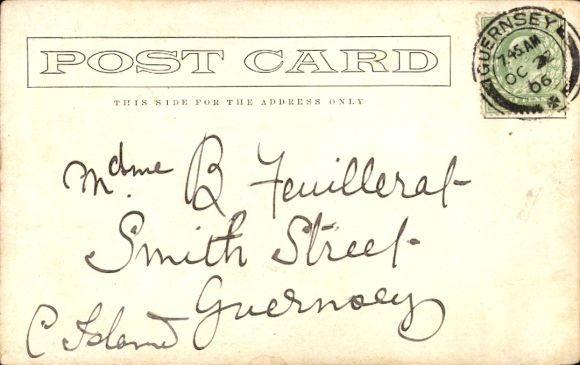 POST CARD
THIS SIDE FOR THE ADDRESS ONLY
GUERNSEY
7.45 AM
OC
06
Mdme B Feuillerat
Smith Street
Guernsey
C Island